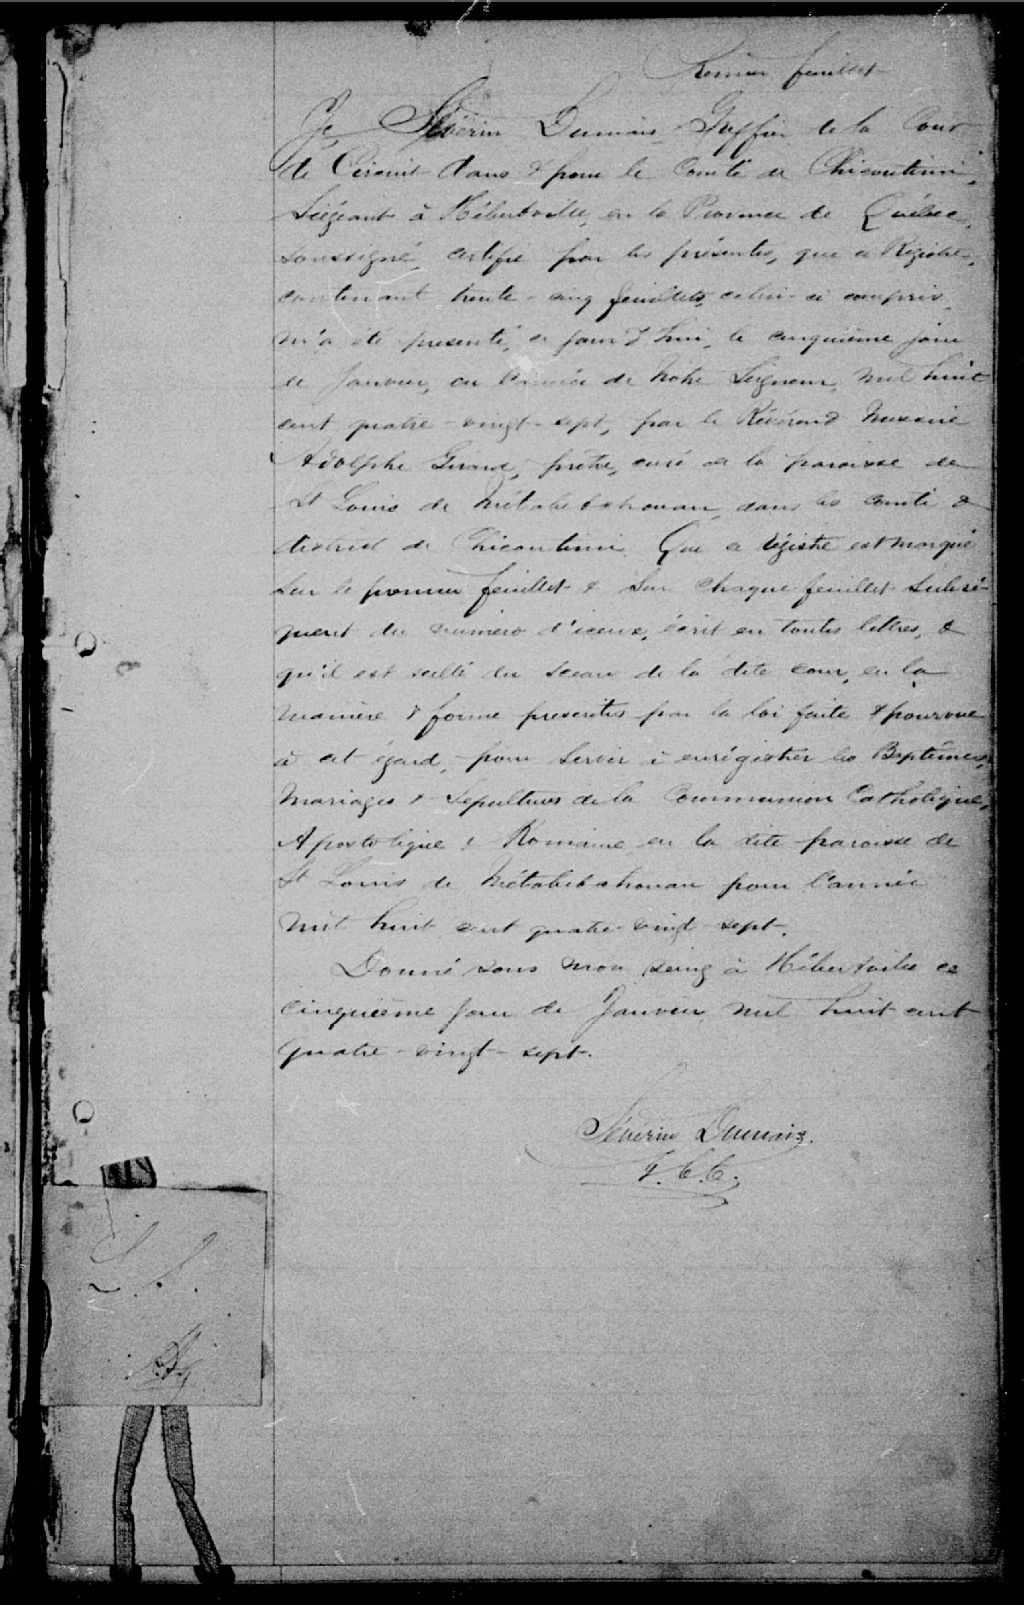 Premier feuillet
Je Séverin Dumais Greffier de la Cour
de Circuit dans & pour le Comté de Chicoutimi,
Siégeant à Hébertville, en la Province de Québec,
soussigné, certifie par les présentes, que ce Régistre,
contenant trente-cinq feuillets, celui-ci compris,
m'a été présenté, ce jour d'hui, le cinquième jour
de Janvier, en l'année de Notre Seigneur, mil huit
cent quatre-vingt-sept, par le Révérend Messire
Adolphe Girard, prêtre, curé de la paroisse de
St Louis de Métabetchouan, dans les comté &
district de Chicoutimi. Que ce régistre est marqué
sur le premier feuillet & sur chaque feuillet subsé-
quent du numéro d'iceux, écrit en toutes lettres, &
qu'il est scellé du sceau de la dite cour, en la
manière & forme prescrites par la loi faite & pourvue
à cet égard, pour servir à enrégistrer les Baptêmes,
Mariages & Sépultures de la Communion Catholique,
Apostolique & Romaine en la dite paroisse de
St Louis de Métabetchouan pour l'année
mil huit cent quatre-vingt-sept.
Donné sous mon seing à Hébertville ce
cinquième jour de Janvier, mil huit cent
quatre-vingt-sept.
Séverin Dumais.
G.C.C.